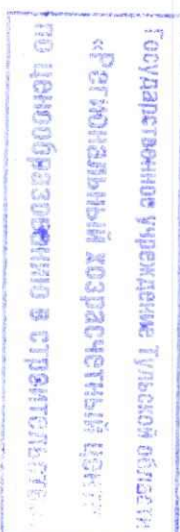 Государственное учреждение Тульской области
«Региональный хозрасчетный центр
по ценообразованию в строительстве